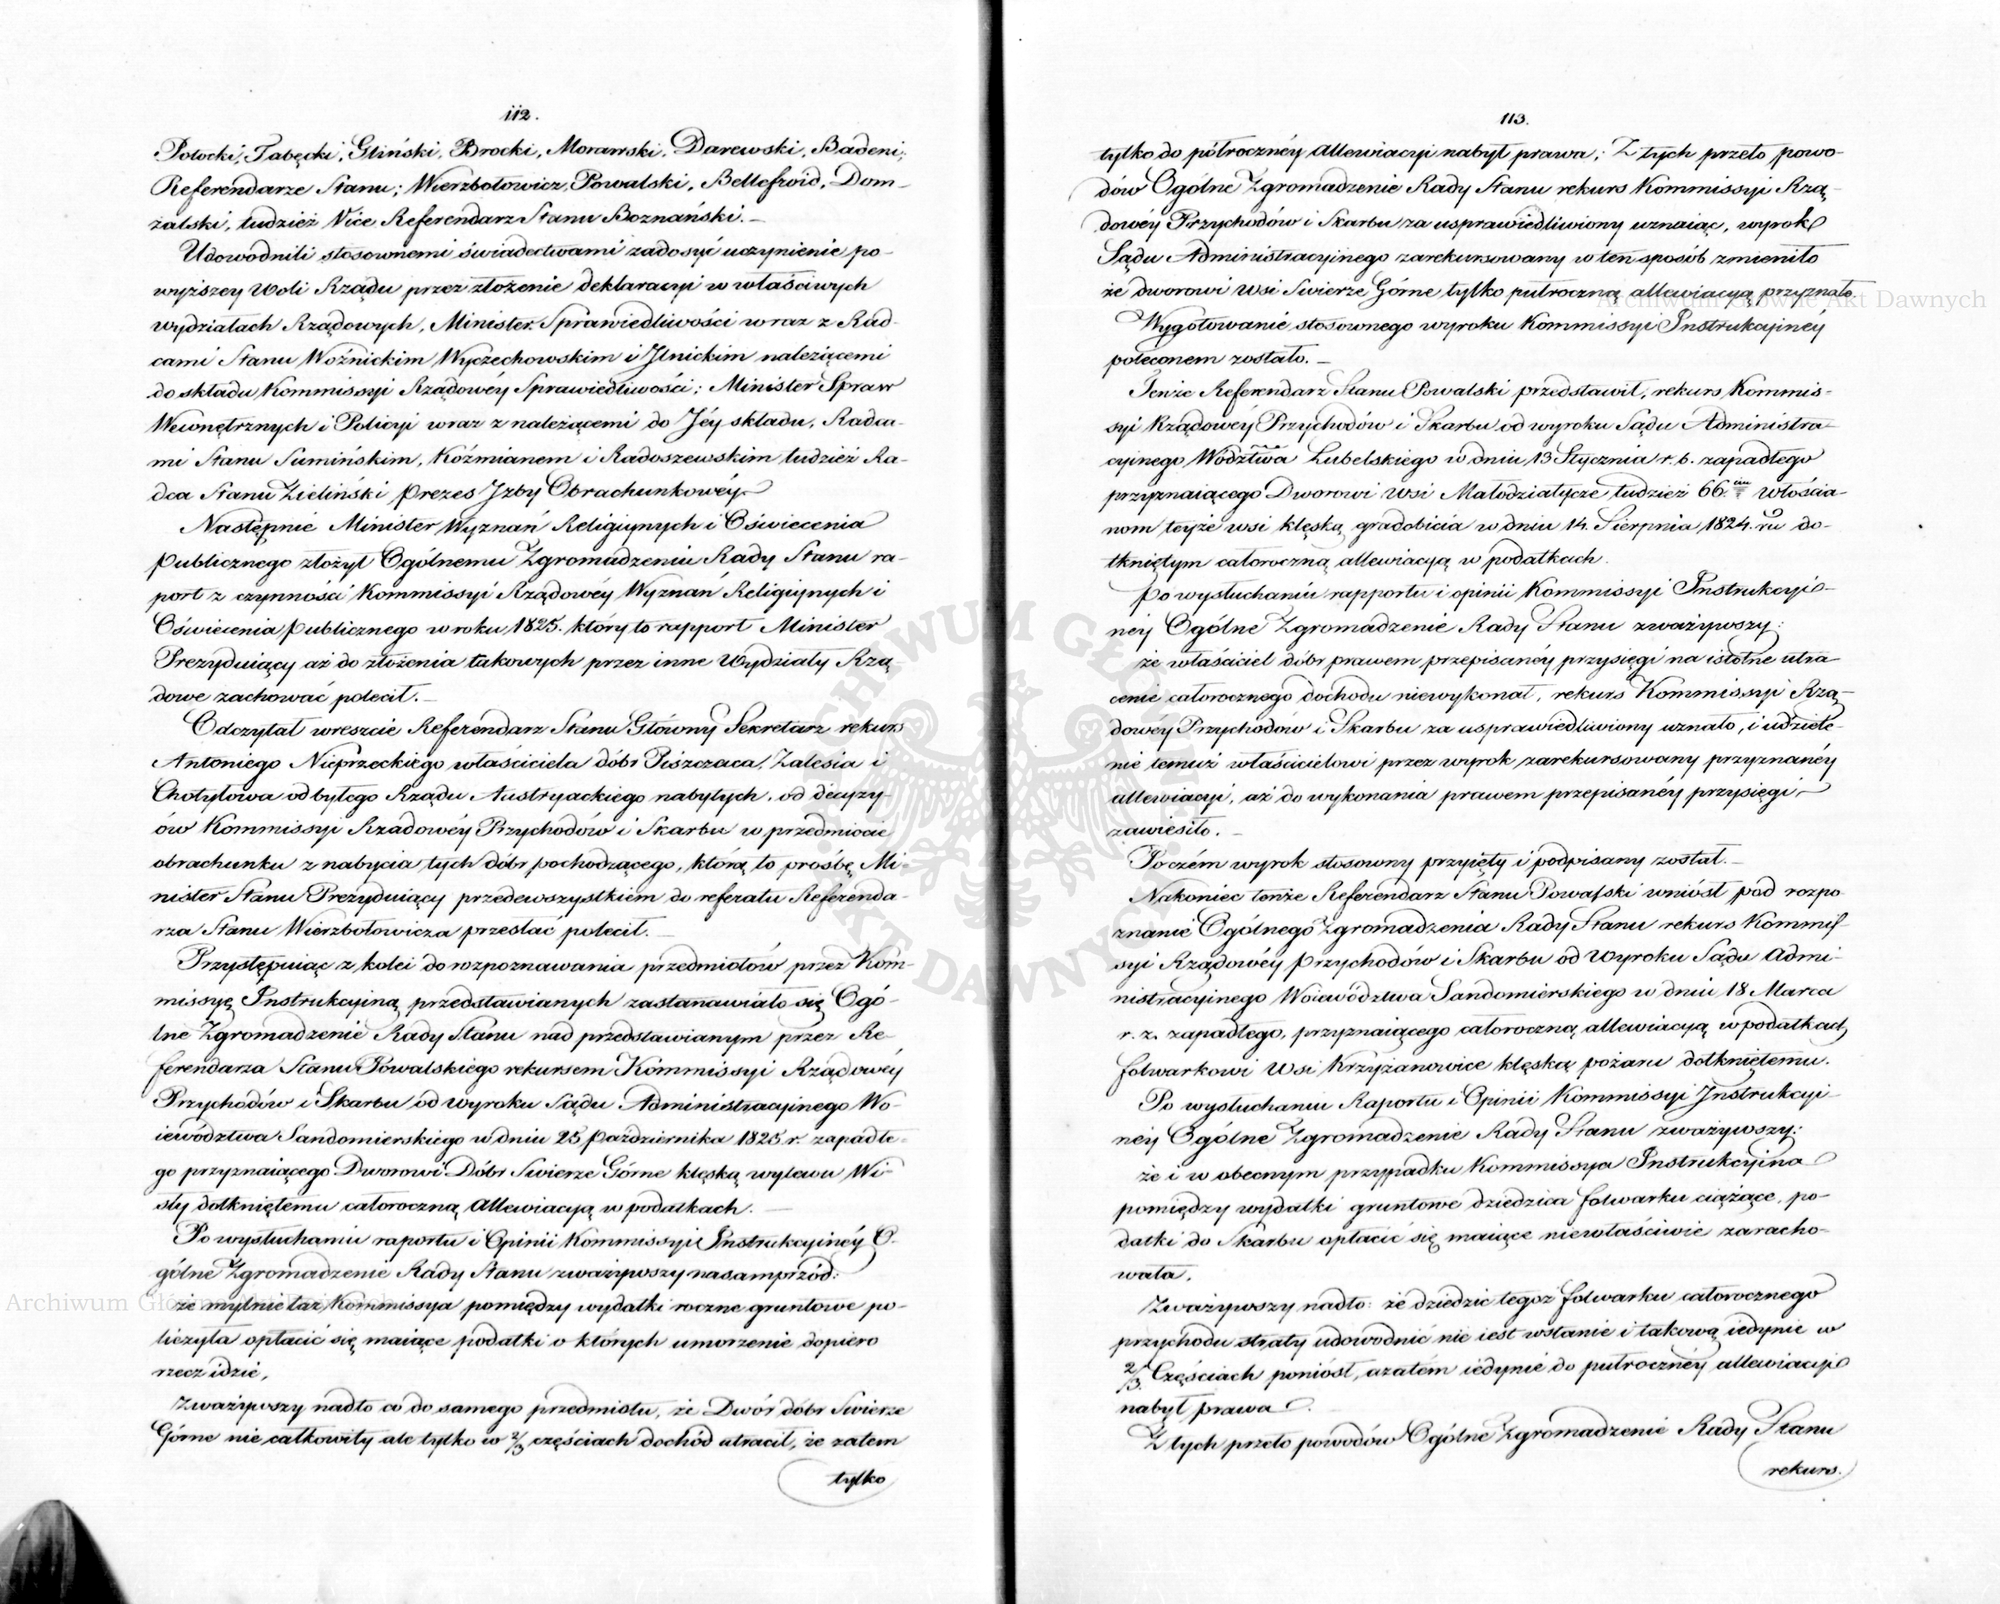 112.
Potocki, Tabęcki, Gliński, Brocki, Morawski, Darewski, Badeni,
Referendarze Stanu; Wierzbołowicz, Powalski, Bellefroid, Dom-
żalski, tudzież Vice Referendarz Stanu Boznański. _
Udowodnili stosownemi świadectwami zadosyć uczynienie po-
wyższey Woli Rządu przez złożenie deklaracyi w właściwych
wydziałach Rządowych, Minister Sprawiedliwości wraz z Rad-
cami Stanu Woźnickim Wyczechowskim i Ilnickim należącemi
do składu Kommissyi Rządowéy Sprawiedliwości; Minister Spraw
Wewnętrznych i Policyi wraz z należącemi do Jéy składu, Radca-
mi Stanu Sumińskim, Koźmianem i Radoszewskim tudzież Ra-
dca Stanu Zieliński Prezes Izby Obrachunkowéy.
Następnie Minister Wyznań Religiynych i Oświecenia
Publicznego złożył Ogólnemu Zgromadzeniu Rady Stanu ra-
port z czynności Kommissyi Rządowéy Wyznań Religiynych i
Oświecenia Publicznego w roku 1825. który to rapport Minister
Prezyduiący aż do złożenia takowych przez inne Wydziały Rzą-
dowe zachować polecił. _
Odczytał wreszcie Referendarz Stanu Główny Sekretarz rekurs
Antoniego Nieprzeckiego właściciela dóbr Piszczaca, Zalesia i
Chotyłowa od byłego Rządu Austryackiego nabytych, od decyzy-
ów Kommissyi Rządowéy Przychodów i Skarbu w przedmiocie
obrachunku z nabycia tych dóbr pochodzącego, którą to prośbę Mi-
nister Stanu Prezyduiący przedewszystkiem do referatu Referenda-
rza Stanu Wierzbołowicza przesłać polecił. _
Przystępuiąc z kolei do rozpoznawania przedmiotów przez Kom-
missyę Instrukcyiną przedstawianych zastanawiało się Ogó-
lne Zgromadzenie Rady Stanu nad przedstawianym przez Re-
ferendarza Stanu Powalskiego rekursem Kommissyi Rządowéy
Przychodów i Skarbu od wyroku Sądu Administracyinego Wo-
iewództwa Sandomierskiego w dniu 25 Października 1825 r. zapadłe-
go przyznaiącego Dworowi Dóbr Swierże Górne klęską wylewu Wi-
sły dotkniętemu całoroczną Allewiacyą w podatkach. _
Po wysłuchaniu raportu i Opinii Kommissyi Instrukcyinéy O-
gólne Zgromadzenie Rady Stanu zważywszy nasamprzód:
że mylnie taż Kommissya pomiędzy wydatki roczne gruntowe po-
liczyła opłacić się maiące podatki o których umorzenie dopiero
rzecz idzie,
Zważywszy nadto co do samego przedmiotu, że Dwór dóbr Swierże
Górne nie całkowity ale tylko w 2/3 częściach dochód utracił, że zatem
tylko
113.
tylko do półrocznéy allewiacyi nabył prawa; Z tych przeto powo-
dów Ogólne Zgromadzenie Rady Stanu rekurs Kommissyi Rzą-
dowéy Przychodów i Skarbu za usprawiedliwiony uznaiąc, wyrok
Sądu Administracyinego zarekursowany w ten sposób zmieniło
że dworowi Wsi Swierże Górne tylko pułroczną allewiacyą przyznało.
Wygotowanie stosownego wyroku Kommissyi Instrukcyinéy
poleconem zostało. _
Tenże Referendarz Stanu Powalski przedstawił, rekurs Kommis-
syi Rządowéy Przychodów i Skarbu od wyroku Sądu Administra-
cyinego Wodztwa Lubelskiego w dniu 13 Stycznia r. b. zapadłego
przyznaiącego Dworowi Wsi Małodziatycze tudzież 66.ciu włościa-
nom teyże wsi klęską gradobicia w dniu 14. Sierpnia 1824. ru do-
tkniętym całoroczną allewiacyą w podatkach.
Po wysłuchaniu rapportu i opinii Kommissyi Instrukcyi-
ney Ogólne Zgromadzenie Rady Stanu zważywszy:
że właściciel dóbr prawem przepisanéy przysięgi na istotne utra-
cenie całorocznego dochodu niewykonał, rekurs Kommissyi Rzą-
dowéy Przychodów i Skarbu za usprawiedliwiony uznało, i udziele-
nie temuż właścicielowi przez wyrok zarekursowany przyznanéy
allewiacyi, aż do wykonania prawem przepisanéy przysięgi,
zawiesiło. _
Poczém wyrok stosowny przyięty i podpisany został. _
Nakoniec tenże Referendarz Stanu Powalski wniósł pod rozpo-
znanie Ogólnego Zgromadzenia Rady Stanu rekurs Kommis-
syi Rządowéy Przychodów i Skarbu od Wyroku Sądu Admi-
nistracyinego Woiewództwa Sandomierskiego w dniu 18 Marca
r. z. zapadłego, przyznaiącego całoroczną allewiacyą w podatkach
folwarkowi Wsi Krzyżanowice klęską pożaru dotkniętemu.
Po wysłuchaniu Raportu i Opinii Kommissyi Instrukcyi-
néy Ogólne Zgromadzenie Rady Stanu zważywszy:
że i w obecnym przypadku Kommissya Instrukcyina
pomiędzy wydatki gruntowe dziedzica folwarku ciążące, po-
datki do Skarbu opłacić się maiące niewłaściwie zaracho-
wała.
Zważywszy nadto: że dziedzic tegoż folwarku całorocznego
przychodu straty udowodnić nie iest wstanie i takową iedynie w
2/3. Częściach poniósł, a zatém iedynie do pułrocznéy allewiacyi
nabył prawa.
Z tych przeto powodów Ogólne Zgromadzenie Rady Stanu
rekurs.
Archiwum Główne Akt Dawnych
Archiwum Główne Akt Dawnych
ARCHIWUM GŁÓWNE AKT DAWNYCH